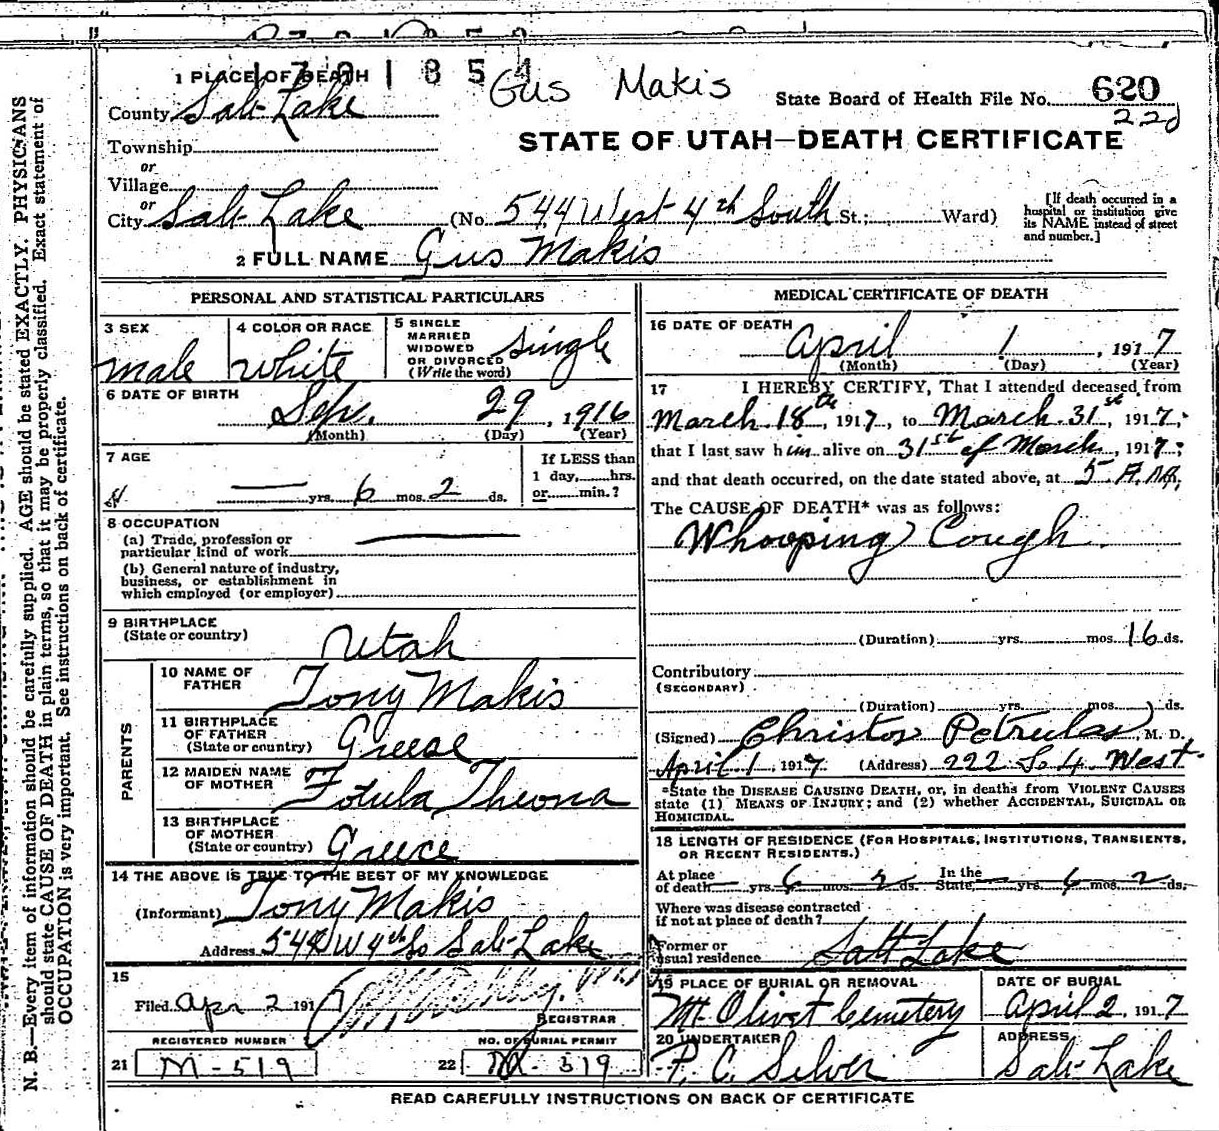 1791854
1 PLACE OF DEATH
Gus Makis
State Board of Health File No. 620
County Salt Lake
220
Township
STATE OF UTAH—DEATH CERTIFICATE
or
Village
or
City Salt Lake (No. 544 West 4th South St.; Ward)
[If death occurred in a hospital or institution give its NAME instead of street and number.]
2 FULL NAME Gus Makis
PERSONAL AND STATISTICAL PARTICULARS
3 SEX
male
4 COLOR OR RACE
white
5 SINGLE
MARRIED
WIDOWED
OR DIVORCED
(Write the word)
single
6 DATE OF BIRTH
Sep. 29, 1916
(Month) (Day) (Year)
7 AGE
— yrs. 6 mos. 2 ds.
If LESS than
1 day, hrs.
or min.?
8 OCCUPATION
(a) Trade, profession or
particular kind of work —
(b) General nature of industry,
business, or establishment in
which employed (or employer)
9 BIRTHPLACE
(State or country)
Utah
PARENTS
10 NAME OF
FATHER
Tony Makis
11 BIRTHPLACE
OF FATHER
(State or country)
Greece
12 MAIDEN NAME
OF MOTHER
Fotula Theona
13 BIRTHPLACE
OF MOTHER
(State or country)
Greece
14 THE ABOVE IS TRUE TO THE BEST OF MY KNOWLEDGE
(Informant) Tony Makis
Address 544 W 4th So Salt Lake
15
Filed Apr 2 1917
REGISTRAR
REGISTERED NUMBER
21 M-519
NO. OF BURIAL PERMIT
22 M-519
MEDICAL CERTIFICATE OF DEATH
16 DATE OF DEATH
April 1, 1917
(Month) (Day) (Year)
17 I HEREBY CERTIFY, That I attended deceased from
March 18th, 1917, to March 31st, 1917;
that I last saw him alive on 31st of March, 1917;
and that death occurred, on the date stated above, at 5 A.M.
The CAUSE OF DEATH* was as follows:
Whooping Cough
(Duration) yrs. mos. 16 ds.
Contributory
(SECONDARY)
(Duration) yrs. mos. ds.
(Signed) Christos Petrulas, M. D.
April 1, 1917 (Address) 222 So 4 West
*State the DISEASE CAUSING DEATH, or, in deaths from VIOLENT CAUSES
state (1) MEANS OF INJURY; and (2) whether ACCIDENTAL, SUICIDAL OR
HOMICIDAL.
18 LENGTH OF RESIDENCE (FOR HOSPITALS, INSTITUTIONS, TRANSIENTS,
OR RECENT RESIDENTS.)
At place In the
of death — yrs. 6 mos. 2 ds. State — yrs. 6 mos. 2 ds.
Where was disease contracted
if not at place of death?
Former or
usual residence Salt Lake
19 PLACE OF BURIAL OR REMOVAL
Mt Olivet Cemetery
DATE OF BURIAL
April 2, 1917
20 UNDERTAKER
P. C. Silver
ADDRESS
Salt Lake
READ CAREFULLY INSTRUCTIONS ON BACK OF CERTIFICATE
N. B.—Every item of information should be carefully supplied. AGE should be stated EXACTLY. PHYSICIANS
should state CAUSE OF DEATH in plain terms, so that it may be properly classified. Exact statement of
OCCUPATION is very important. See instructions on back of certificate.